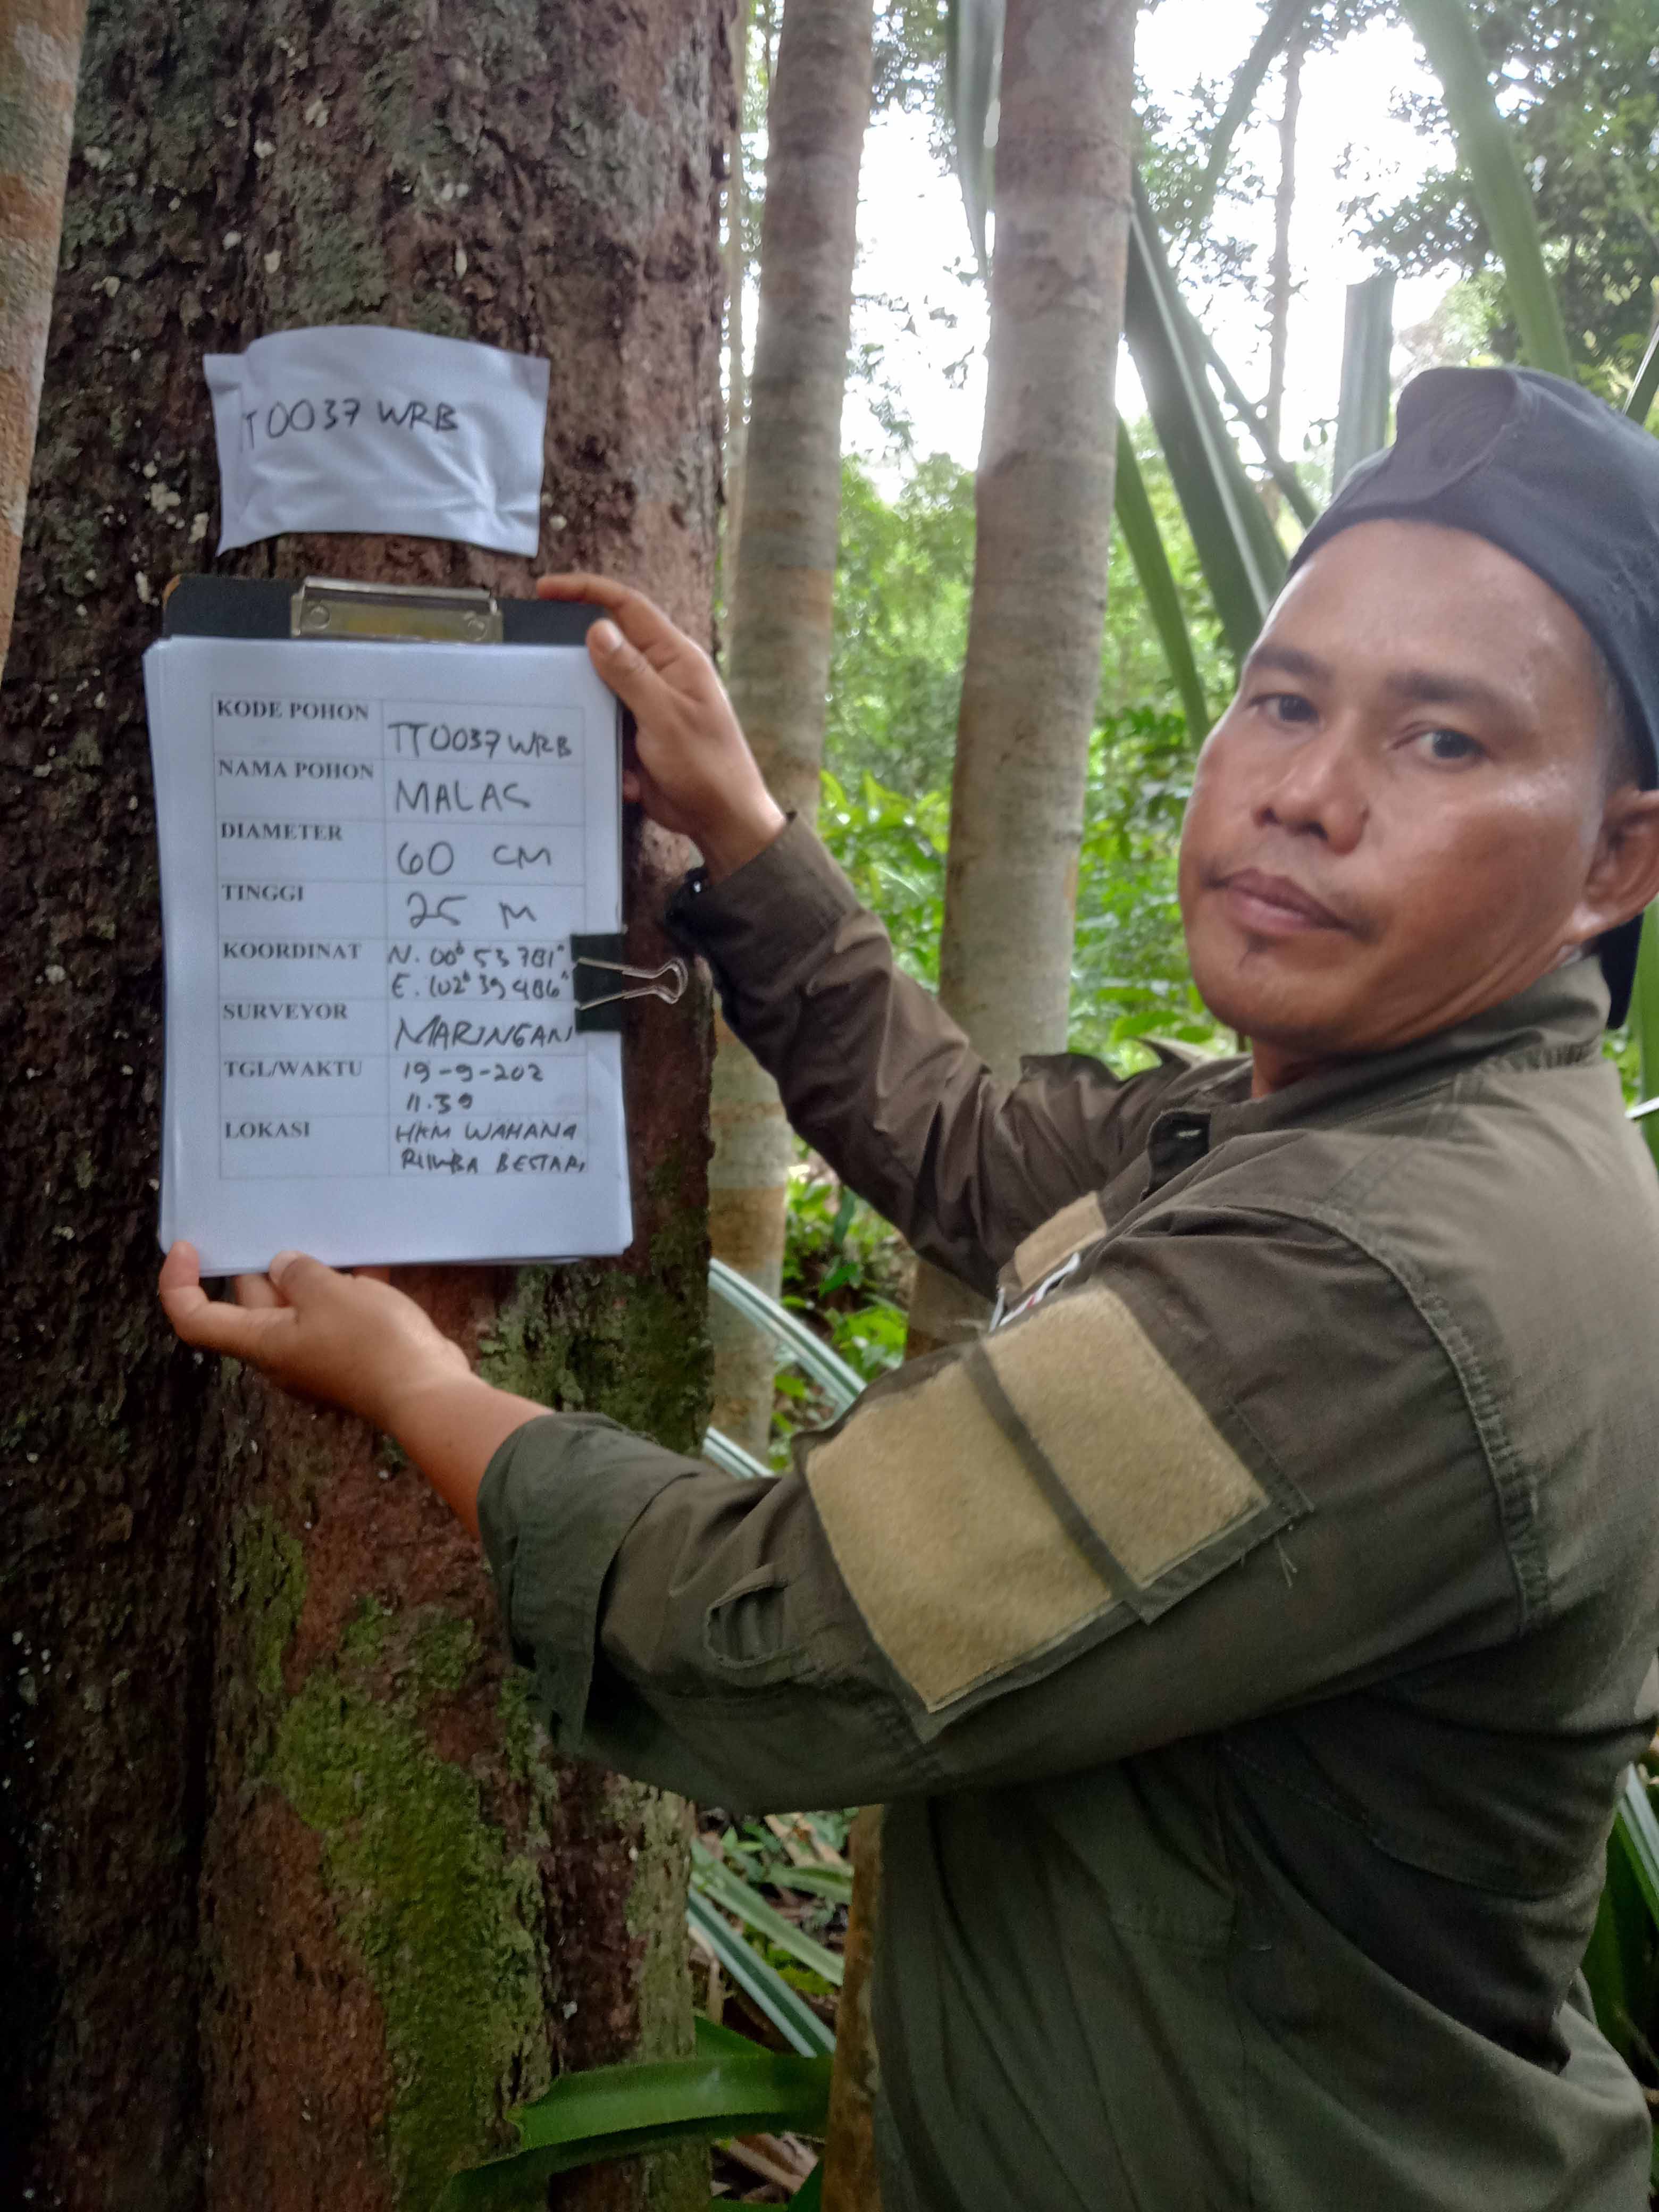 TT0037 WRB
KODE POHON
TT0037 WRB
NAMA POHON
MALAS
DIAMETER
60 CM
TINGGI
25 M
KOORDINAT
N. 00° 53 781"
E. 102° 39 486"
SURVEYOR
MARINGAN
TGL/WAKTU
19-9-202
11.39
LOKASI
HKM WAHANA
RIMBA BESTARI